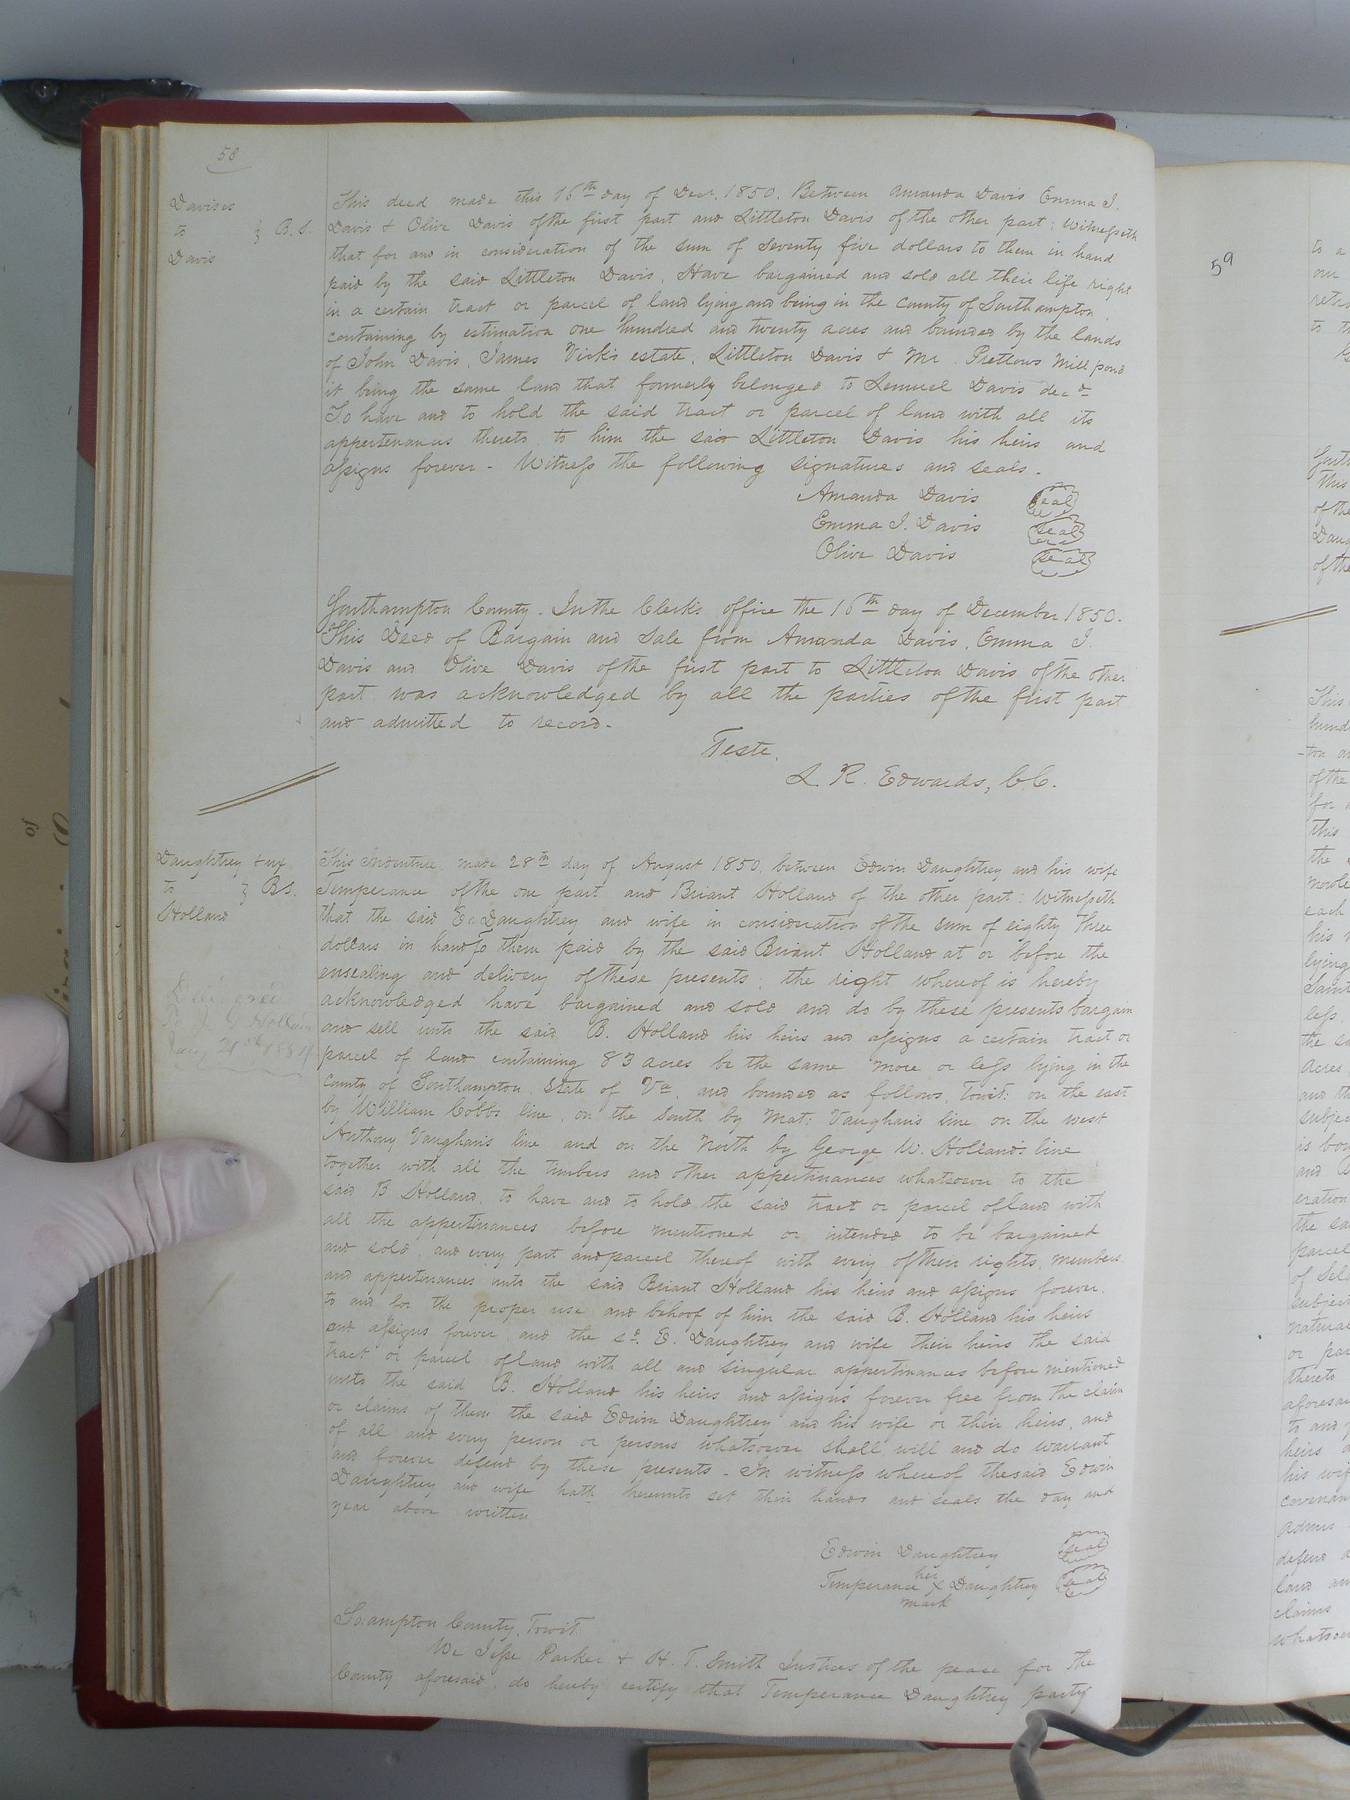 58
Davises
to } B.S.
Davis
This deed made this 16th day of Decr. 1850. Between Amanda Davis Emma J.
Davis & Olive Davis of the first part and Littleton Davis of the other part; Witnesseth
that for and in consideration of the sum of Seventy five dollars to them in hand
paid by the said Littleton Davis, Have bargained and sold all their life right
in a certain tract or parcel of land lying and being in the County of Southampton
containing by estimation one hundred and twenty acres and bounded by the lands
of John Davis, James Vick's estate, Littleton Davis & Mr. Pretlows Mill pond
it being the same land that formerly belonged to Lemuel Davis decd
To have and to hold the said tract or parcel of land with all its
appertenances thereto to him the said Littleton Davis his heirs and
assigns forever - Witness the following signatures and seals.
Amanda Davis Seal
Emma J. Davis Seal
Olive Davis Seal
Southampton County. In the Clerk's office the 16th day of December 1850.
This Deed of Bargain and Sale from Amanda Davis, Emma J.
Davis and Olive Davis of the first part to Littleton Davis of the other
part was acknowledged by all the parties of the first part
and admitted to record.
Teste,
L. R. Edwards, C.C.
Daughtrey & ux
to } B.S.
Holland
This Indenture made 28th day of August 1850, between Edwin Daughtrey and his wife
Temperance of the one part and Briant Holland of the other part: Witnesseth
that the said E. Daughtrey and wife in consideration of the sum of eighty three
dollars in hand to them paid by the said Briant Holland at or before the
ensealing and delivery of these presents, the right whereof is hereby
acknowledged have bargained and sold and do by these presents bargain
and sell unto the said B. Holland his heirs and assigns a certain tract or
parcel of land containing 83 acres be the same more or less lying in the
County of Southampton, State of Va. and bounded as follows, Towit: on the east
by William Cobbs line, on the South by Mat: Vaughan's line on the west
Anthony Vaughan's line and on the North by George W. Holland's line
together with all the timbers and other appertinances whatsoever to the
said B Holland, to have and to hold the said tract or parcel of land with
all the appertinances before mentioned or intended to be bargained
and sold, and every part and parcel thereof with every of their rights, members
and appertinances unto the said Briant Holland his heirs and assigns forever.
to and for the proper use and behoof of him the said B. Holland his heirs
and assigns forever, and the sd. E. Daughtrey and wife their heirs the said
tract or parcel of land with all and singular appertinances before mentioned
unto the said B. Holland his heirs and assigns forever free from the claim
or claims of them the said Edwin Daughtrey and his wife or their heirs, and
of all and every person or persons whatsoever shall will and do warrant
and forever defend by these presents - In witness whereof the said Edwin
Daughtrey and wife hath hereunto set their hands and seals the day and
year above written
Edwin Daughtrey Seal
her
Temperance X Daughtrey Seal
mark
So.ampton County, Towit
We Jesse Parker & H. T. Smith Justices of the peace for the
County aforesaid, do hereby certify that Temperance Daughtrey party
59